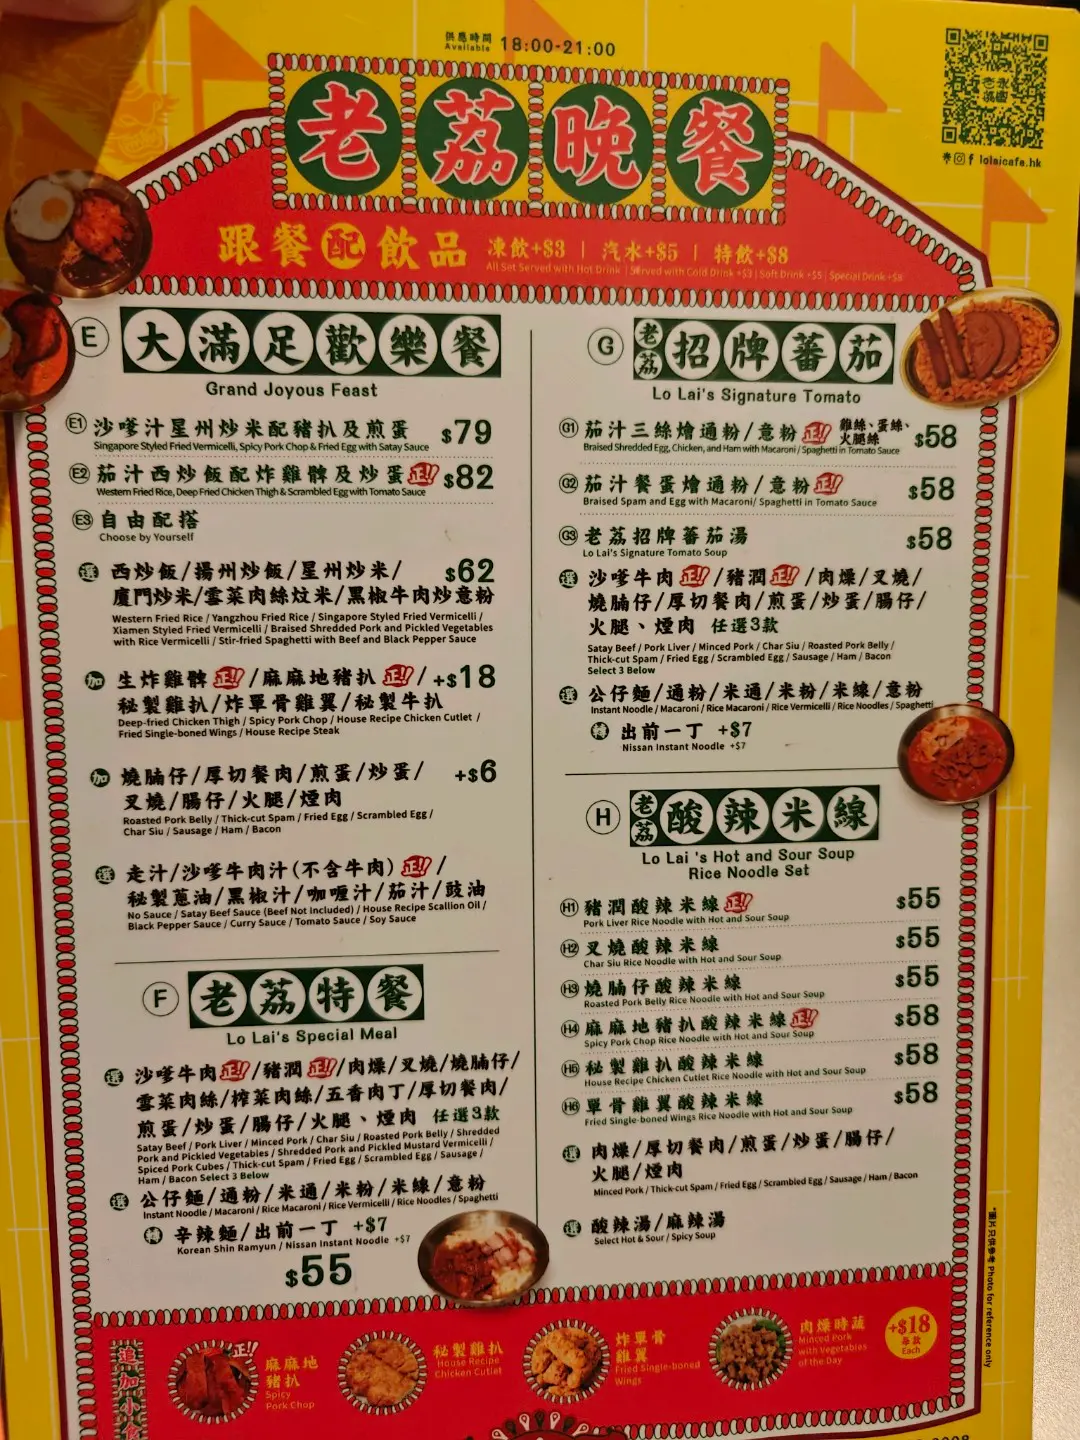 供應時間
Available 18:00-21:00
老荔晚餐
lolaicafe.hk
跟餐配飲品 凍飲+$3 | 汽水+$5 | 特飲+$8
All Set Served with Hot Drink | Served with Cold Drink +$3 | Soft Drink +$5 | Special Drink +$8
E 大滿足歡樂餐
Grand Joyous Feast
E1 沙嗲汁星州炒米配豬扒及煎蛋 $79
Singapore Styled Fried Vermicelli, Spicy Pork Chop & Fried Egg with Satay Sauce
E2 茄汁西炒飯配炸雞髀及炒蛋 正!! $82
Western Fried Rice, Deep Fried Chicken Thigh & Scrambled Egg with Tomato Sauce
E3 自由配搭
Choose by Yourself
選 西炒飯/揚州炒飯/星州炒米/ $62
廈門炒米/雪菜肉絲炆米/黑椒牛肉炒意粉
Western Fried Rice / Yangzhou Fried Rice / Singapore Styled Fried Vermicelli /
Xiamen Styled Fried Vermicelli / Braised Shredded Pork and Pickled Vegetables
with Rice Vermicelli / Stir-fried Spaghetti with Beef and Black Pepper Sauce
加 生炸雞髀 正!! /麻麻地豬扒 正!! / +$18
秘製雞扒/炸單骨雞翼/秘製牛扒
Deep-fried Chicken Thigh / Spicy Pork Chop / House Recipe Chicken Cutlet /
Fried Single-boned Wings / House Recipe Steak
加 燒腩仔/厚切餐肉/煎蛋/炒蛋/ +$6
叉燒/腸仔/火腿/煙肉
Roasted Pork Belly / Thick-cut Spam / Fried Egg / Scrambled Egg /
Char Siu / Sausage / Ham / Bacon
選 走汁/沙嗲牛肉汁(不含牛肉) 正!! /
秘製蔥油/黑椒汁/咖喱汁/茄汁/豉油
No Sauce / Satay Beef Sauce (Beef Not Included) / House Recipe Scallion Oil /
Black Pepper Sauce / Curry Sauce / Tomato Sauce / Soy Sauce
F 老荔特餐
Lo Lai's Special Meal
選 沙嗲牛肉 正!! /豬潤 正!! /肉燥/叉燒/燒腩仔/
雪菜肉絲/榨菜肉絲/五香肉丁/厚切餐肉/
煎蛋/炒蛋/腸仔/火腿、煙肉 任選3款
Satay Beef / Pork Liver / Minced Pork / Char Siu / Roasted Pork Belly / Shredded
Pork and Pickled Vegetables / Shredded Pork and Pickled Mustard Vermicelli /
Spiced Pork Cubes / Thick-cut Spam / Fried Egg / Scrambled Egg / Sausage /
Ham / Bacon Select 3 Below
選 公仔麵/通粉/米通/米粉/米線/意粉
Instant Noodle / Macaroni / Rice Macaroni / Rice Vermicelli / Rice Noodles / Spaghetti
轉 辛辣麵/出前一丁 +$7
Korean Shin Ramyun / Nissan Instant Noodle +$7
$55
G 老荔招牌蕃茄
Lo Lai's Signature Tomato
G1 茄汁三絲燴通粉/意粉 正!! 雞絲、蛋絲、火腿絲 $58
Braised Shredded Egg, Chicken, and Ham with Macaroni / Spaghetti in Tomato Sauce
G2 茄汁餐蛋燴通粉/意粉 正!! $58
Braised Spam and Egg with Macaroni/ Spaghetti in Tomato Sauce
G3 老荔招牌蕃茄湯 $58
Lo Lai's Signature Tomato Soup
選 沙嗲牛肉 正!! /豬潤 正!! /肉燥/叉燒/
燒腩仔/厚切餐肉/煎蛋/炒蛋/腸仔/
火腿、煙肉 任選3款
Satay Beef / Pork Liver / Minced Pork / Char Siu / Roasted Pork Belly /
Thick-cut Spam / Fried Egg / Scrambled Egg / Sausage / Ham / Bacon
Select 3 Below
選 公仔麵/通粉/米通/米粉/米線/意粉
Instant Noodle / Macaroni / Rice Macaroni / Rice Vermicelli / Rice Noodles / Spaghetti
轉 出前一丁 +$7
Nissan Instant Noodle +$7
H 老荔酸辣米線
Lo Lai 's Hot and Sour Soup
Rice Noodle Set
H1 豬潤酸辣米線 正!! $55
Pork Liver Rice Noodle with Hot and Sour Soup
H2 叉燒酸辣米線 $55
Char Siu Rice Noodle with Hot and Sour Soup
H3 燒腩仔酸辣米線 $55
Roasted Pork Belly Rice Noodle with Hot and Sour Soup
H4 麻麻地豬扒酸辣米線 正!! $58
Spicy Pork Chop Rice Noodle with Hot and Sour Soup
H5 秘製雞扒酸辣米線 $58
House Recipe Chicken Cutlet Rice Noodle with Hot and Sour Soup
H6 單骨雞翼酸辣米線 $58
Fried Single-boned Wings Rice Noodle with Hot and Sour Soup
選 肉燥/厚切餐肉/煎蛋/炒蛋/腸仔/
火腿/煙肉
Minced Pork / Thick-cut Spam / Fried Egg / Scrambled Egg / Sausage / Ham / Bacon
選 酸辣湯/麻辣湯
Select Hot & Sour / Spicy Soup
*圖片只供參考 Photo for reference only
追加小食
正!! 麻麻地豬扒
Spicy
Pork Chop
秘製雞扒
House Recipe
Chicken Cutlet
炸單骨
雞翼
Fried Single-boned
Wings
肉燥時蔬
Minced Pork
with Vegetables
of the Day
+$18
每款
Each